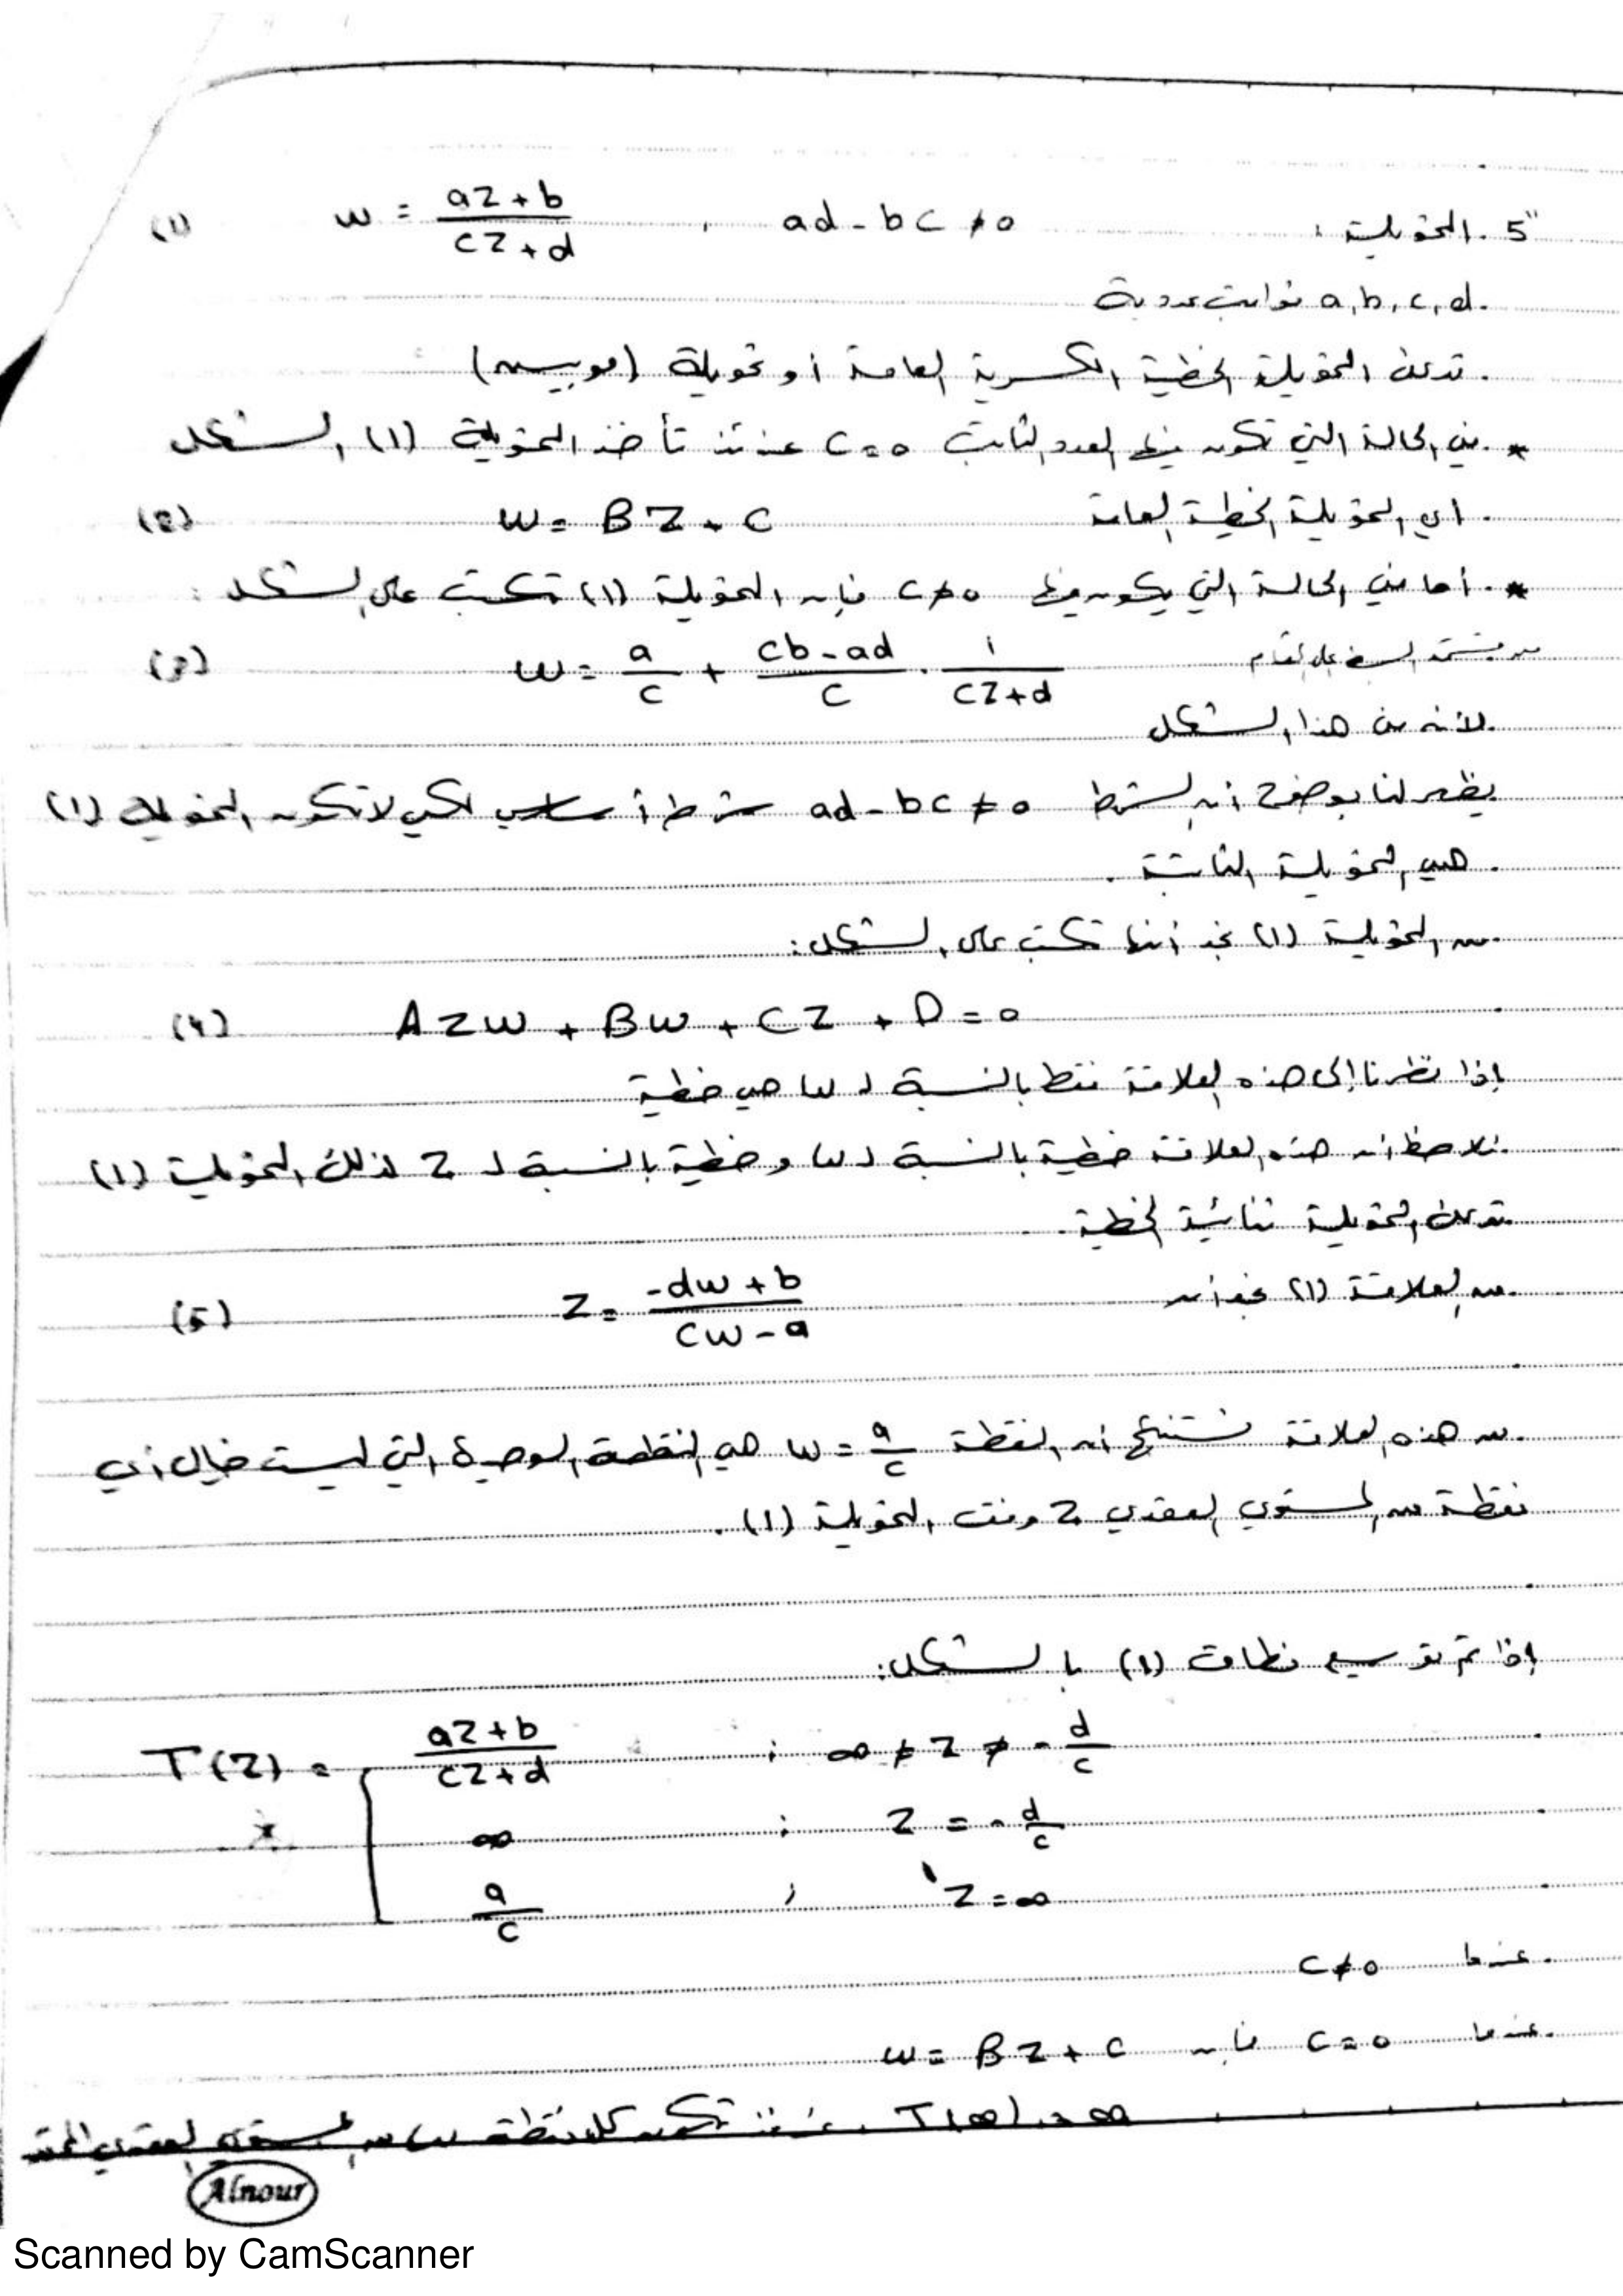 5" . التحويلة : w = (az+b)/(cz+d) , ad - bc ≠ 0 (1)
a, b, c, d ثوابت عددية
تدعى التحويلة الخطية الكسرية العامة أو تحويلة (موبيس)
* في الحالة التي تكون فيها العدد الثابت c=0 عندئذ تأخذ التحويلة (1) الشكل
أي التحويلة الخطية العامة w = Bz + C (2)
* أما في الحالة التي يكون فيها c≠0 فإن التحويلة (1) تكتب على الشكل :
من قسمة البسط على المقام w = a/c + (cb-ad)/c . 1/(cz+d) (3)
لأنه من هذا الشكل
يظهر لنا بوضوح أن الشرط ad - bc ≠ 0 شرط أساسي لكي لا تكون التحويلة (1)
هي التحويلة الثابتة .
من التحويلة (1) نجد أنها تكتب على الشكل :
Azw + Bw + Cz + D = 0 (4)
إذا نظرنا إلى هذه العلاقة فقط بالنسبة لـ w هي خطية
نلاحظ أن هذه العلاقة خطية بالنسبة لـ w وخطية بالنسبة لـ z لذلك التحويلة (1)
تدعى التحويلة ثنائية الخطية .
من العلاقة (1) نجد أن z = (-dw+b)/(cw-a) (5)
من هذه العلاقة نستنتج أن النقطة w = a/c هي النقطة الوحيدة التي ليست خيال أي
نقطة من المستوي العقدي z وفق التحويلة (1) .
إذا تم توسيع نطاق (1) بالشكل :
T(z) = (az+b)/(cz+d) ; ∞ ≠ z ≠ -d/c
∞ ; z = -d/c
a/c ; z = ∞
عندما c≠0
عندما c=0 فإن w = Bz + C
T(∞) = ∞ عندئذ تكون كل نقطة من المستوي العقدي
Alnour
Scanned by CamScanner